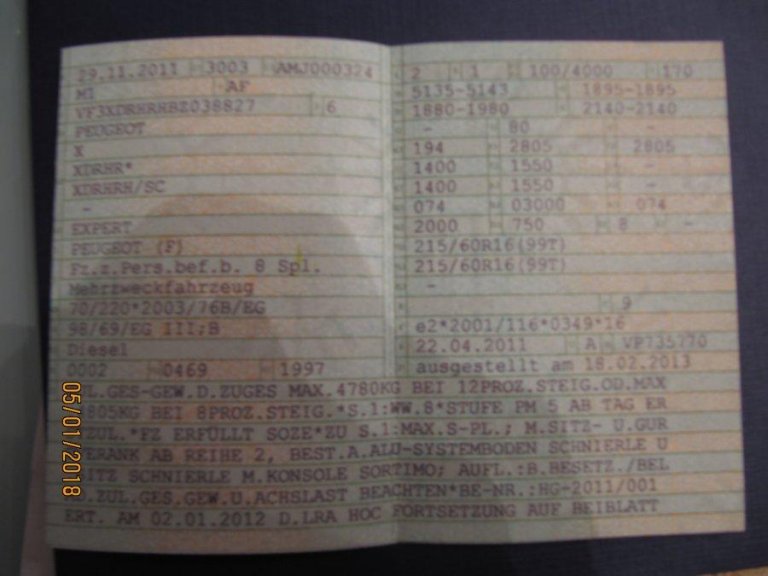 29.11.2011 3003 AMJ000324
M1 AF
VF3XDRHRHBZ038827 6
PEUGEOT
X
XDRHR*
XDRHRH/SC
-
EXPERT
PEUGEOT (F)
Fz.z.Pers.bef.b. 8 Spl.
Mehrzweckfahrzeug
70/220*2003/76B/EG
98/69/EG III;B
Diesel
0002 0469 1997
2 1 100/4000 170
5135-5143 1895-1895
1880-1980 2140-2140
- 80 -
194 2805 2805
1400 1550 -
1400 1550 -
074 03000 074
2000 750 8 -
215/60R16(99T)
215/60R16(99T)
-
9
e2*2001/116*0349*16
22.04.2011 A VP735770
ausgestellt am 18.02.2013
ZUL.GES-GEW.D.ZUGES MAX.4780KG BEI 12PROZ.STEIG.OD.MAX
4805KG BEI 8PROZ.STEIG.*S.1:WW.8*STUFE PM 5 AB TAG ER
ZUL.*FZ ERFÜLLT SOZE*ZU S.1:MAX.S-PL.; M.SITZ- U.GUR
VERANK AB REIHE 2, BEST.A.ALU-SYSTEMBODEN SCHNIERLE U
SITZ SCHNIERLE M.KONSOLE SORTIMO; AUFL.:B.BESETZ./BEL
D.ZUL.GES.GEW.U.ACHSLAST BEACHTEN*BE-NR.:HG-2011/001
ERT. AM 02.01.2012 D.LRA HOC FORTSETZUNG AUF BEIBLATT
05/01/2018